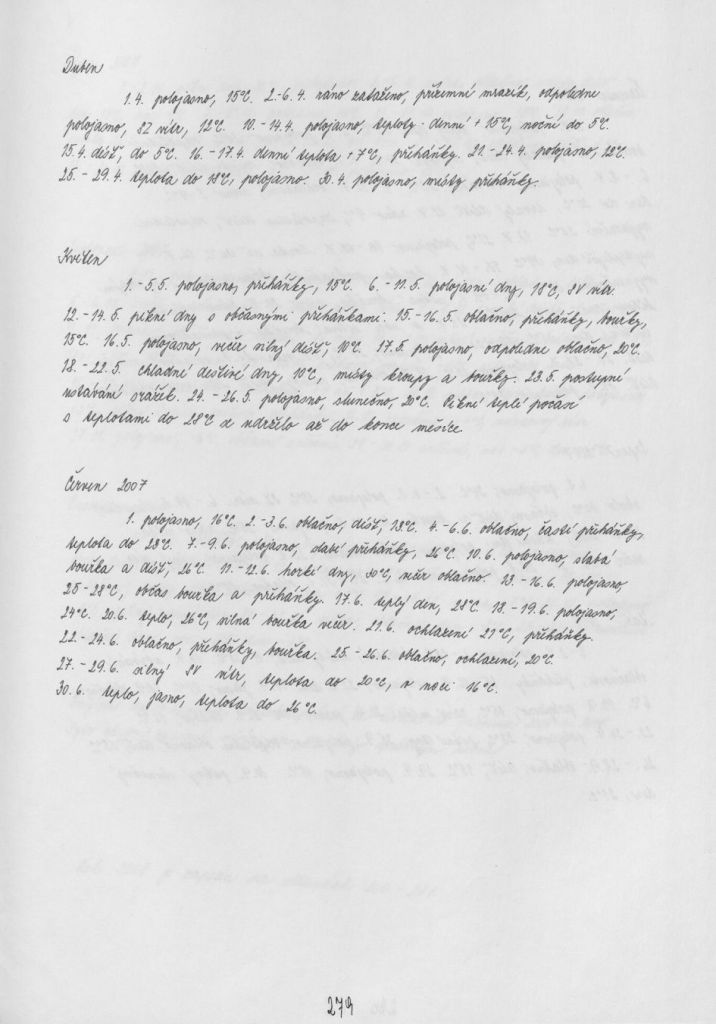 Duben
1.4. polojasno, 15°C. 2.-6.4. ráno zataženo, přízemní mrazík, odpoledne
polojasno, SZ vítr, 12°C. 10.-14.4. polojasno, teploty - denní + 15°C, noční do 5°C.
15.4. déšť, do 5°C. 16.-17.4. denní teplota +7°C, přeháňky. 21.-24.4. polojasno, 12°C.
25.-29.4. teplota do 18°C, polojasno. 30.4. polojasno, místy přeháňky.
Květen
1.-5.5. polojasno, přeháňky, 15°C. 6.-11.5. polojasné dny, 18°C, SV vítr.
12.-14.5. pěkné dny s občasnými přeháňkami. 15.-16.5. oblačno, přeháňky, bouřky,
15°C. 16.5. polojasno, večer silný déšť, 10°C. 17.5. polojasno, odpoledne oblačno, 20°C.
18.-22.5. chladné deštivé dny, 10°C, místy kroupy a bouřky. 23.5. postupné
ustávání srážek. 24.-26.5. polojasno, slunečno, 20°C. Pěkné teplé počasí
s teplotami do 28°C se udrželo až do konce měsíce.
Červen 2007
1. polojasno, 16°C. 2.-3.6. oblačno, déšť, 18°C. 4.-6.6. oblačno, časté přeháňky,
teplota do 23°C. 7.-9.6. polojasno, slabé přeháňky, 26°C. 10.6. polojasno, slabá
bouřka a déšť, 26°C. 11.-12.6. horké dny, 30°C, večer oblačno. 13.-16.6. polojasno,
25-28°C, občas bouřka a přeháňky. 17.6. teplý den, 28°C. 18.-19.6. polojasno,
24°C. 20.6. teplo, 26°C, silná bouřka večer. 21.6. ochlazení 21°C, přeháňky.
22.-24.6. oblačno, přeháňky, bouřka. 25.-26.6. oblačno, ochlazení, 20°C.
27.-29.6. silný SV vítr, teplota do 20°C, v noci 16°C.
30.6. teplo, jasno, teplota do 26°C.
279